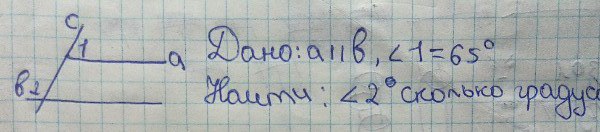 c
1
a
Дано: a || b, ∠1 = 65°
b 2
Найти: ∠2° сколько градус